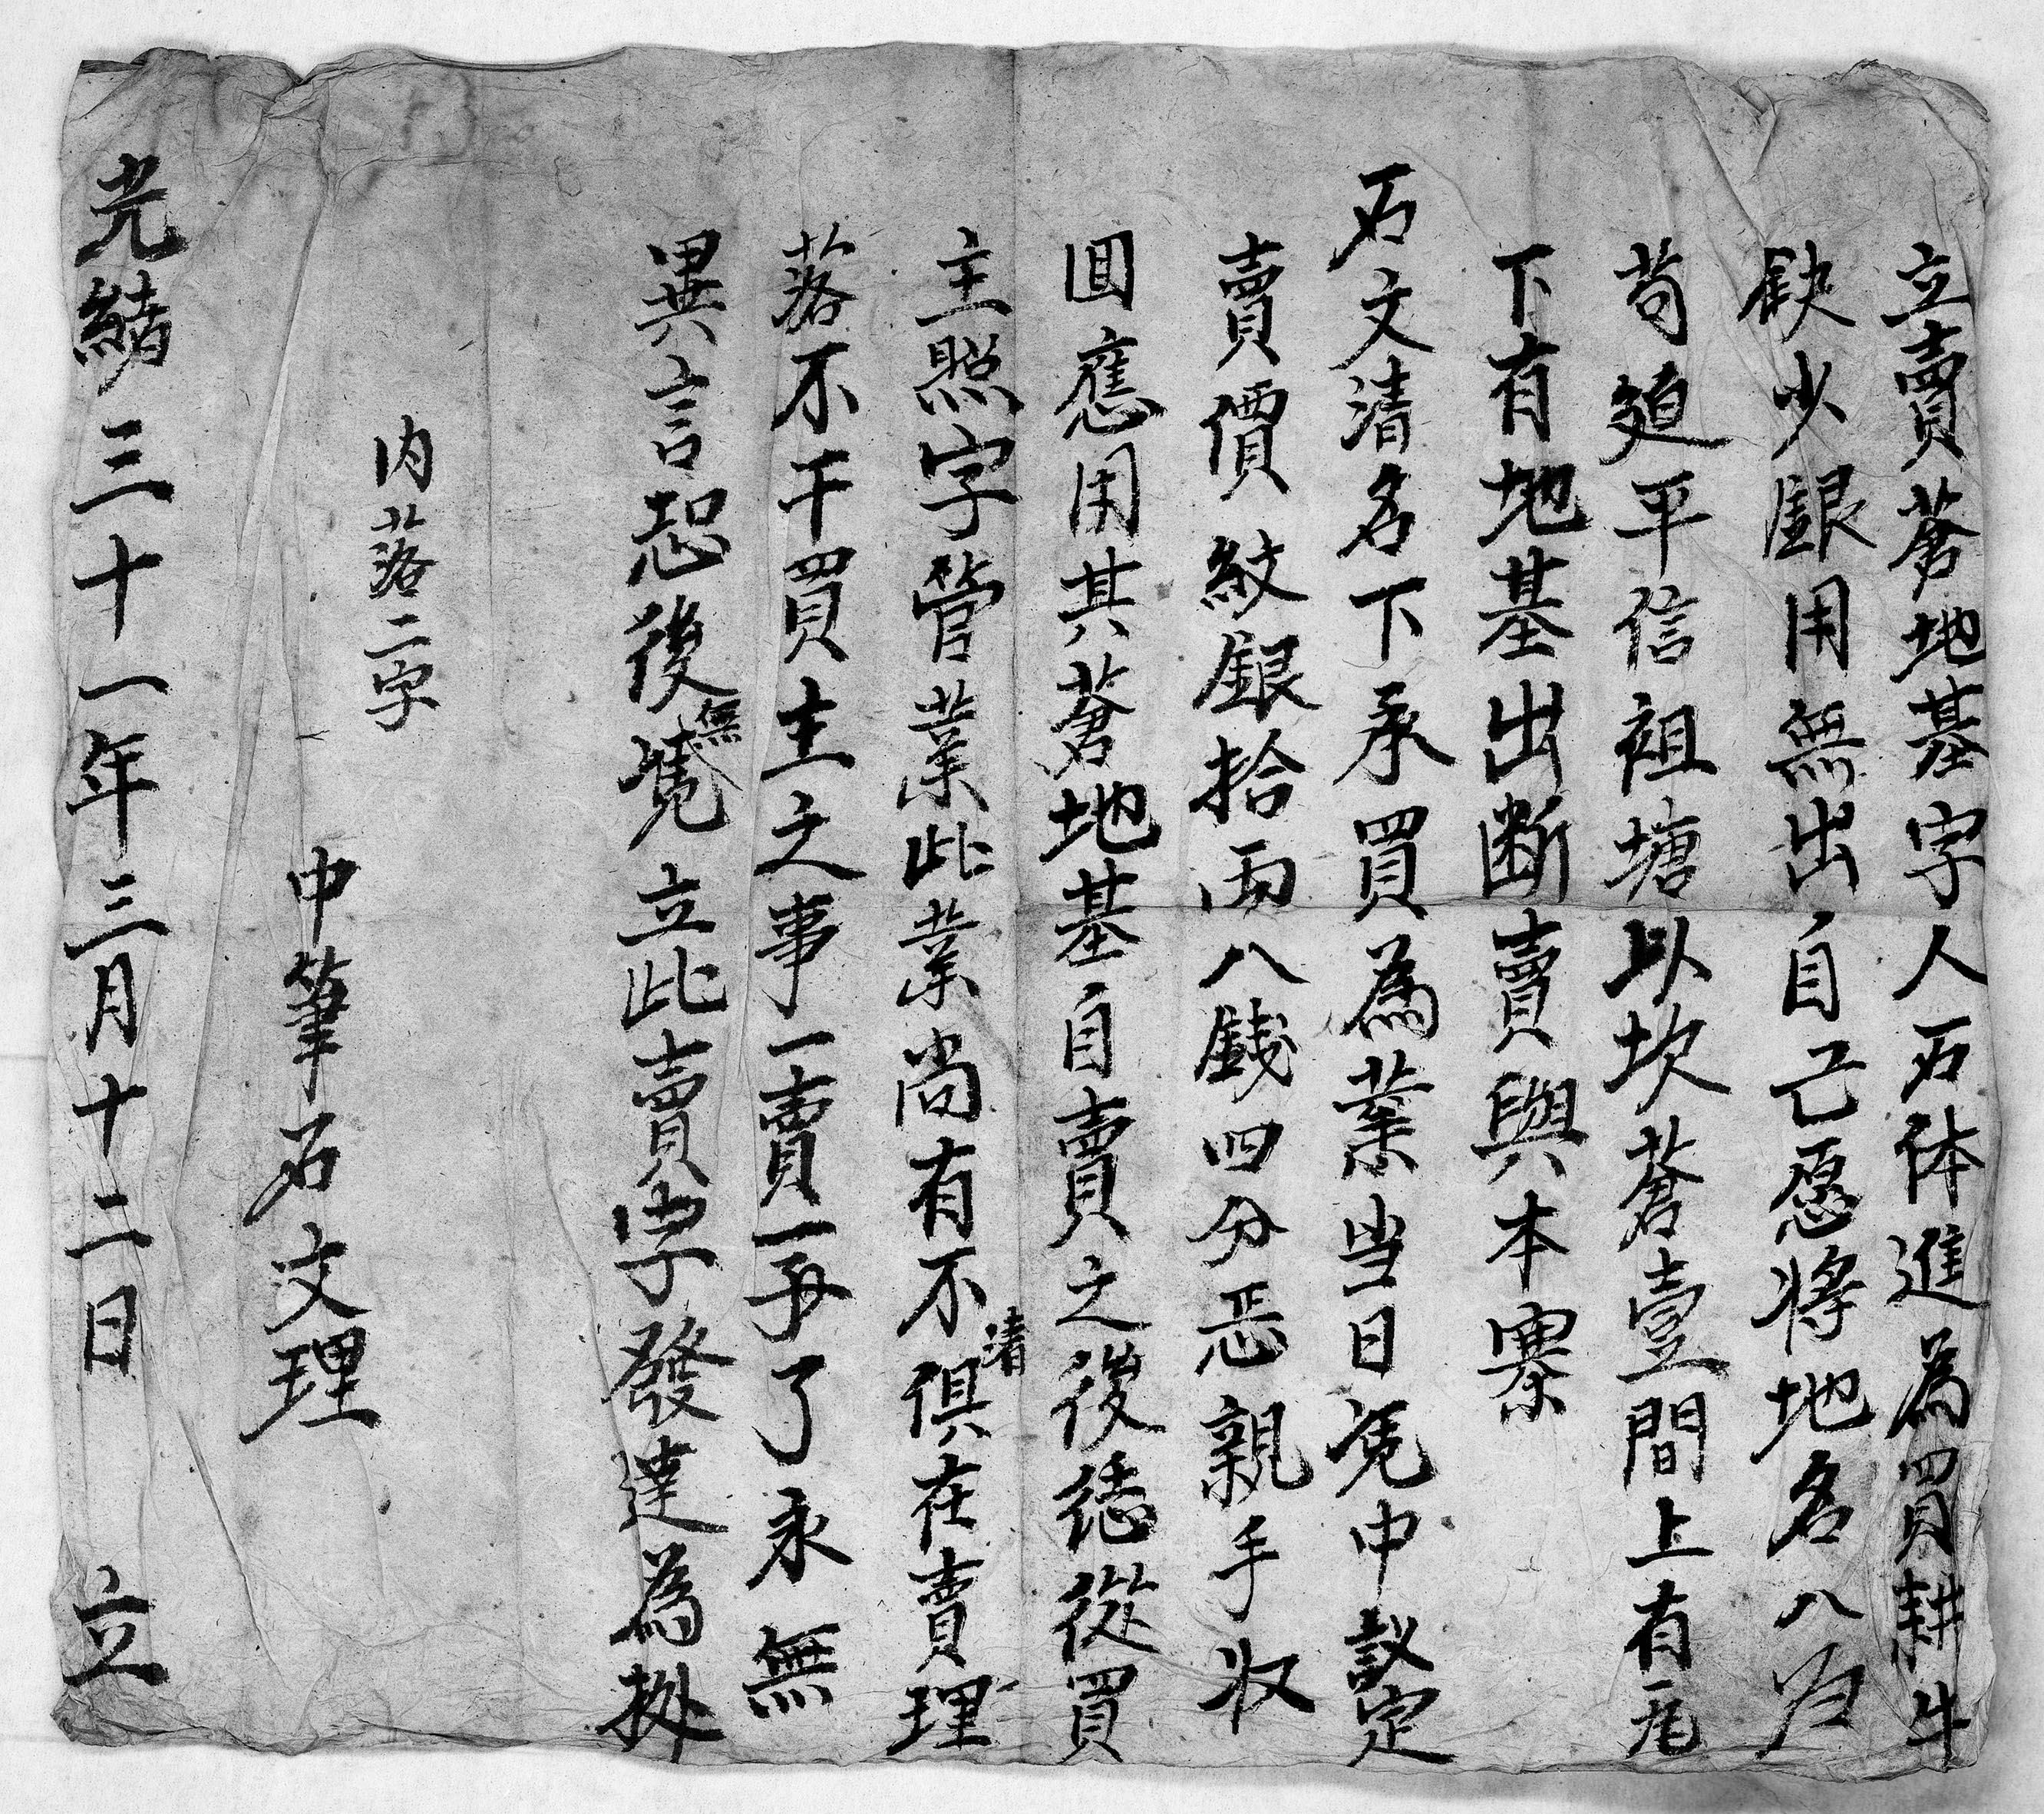 立賣蒼地基字人石体進為買耕牛
缺少銀用無出自己愿將地名八
苟廹平信祖塘以坎蒼壹間上有瓦
下有地基出断賣與本寨
石文清名下承買為業当日凭中議定
賣價紋銀拾両八錢四分恶親手収
囬應用其蒼地基自賣之後㤀從買
主照字管業此業尚有不清俱在賣理
落不干買主之事一賣一了永無
異言恐後無凭立此賣字發達為㨿
内落二字
中筆石文理
光緒三十一年三月十二日 立